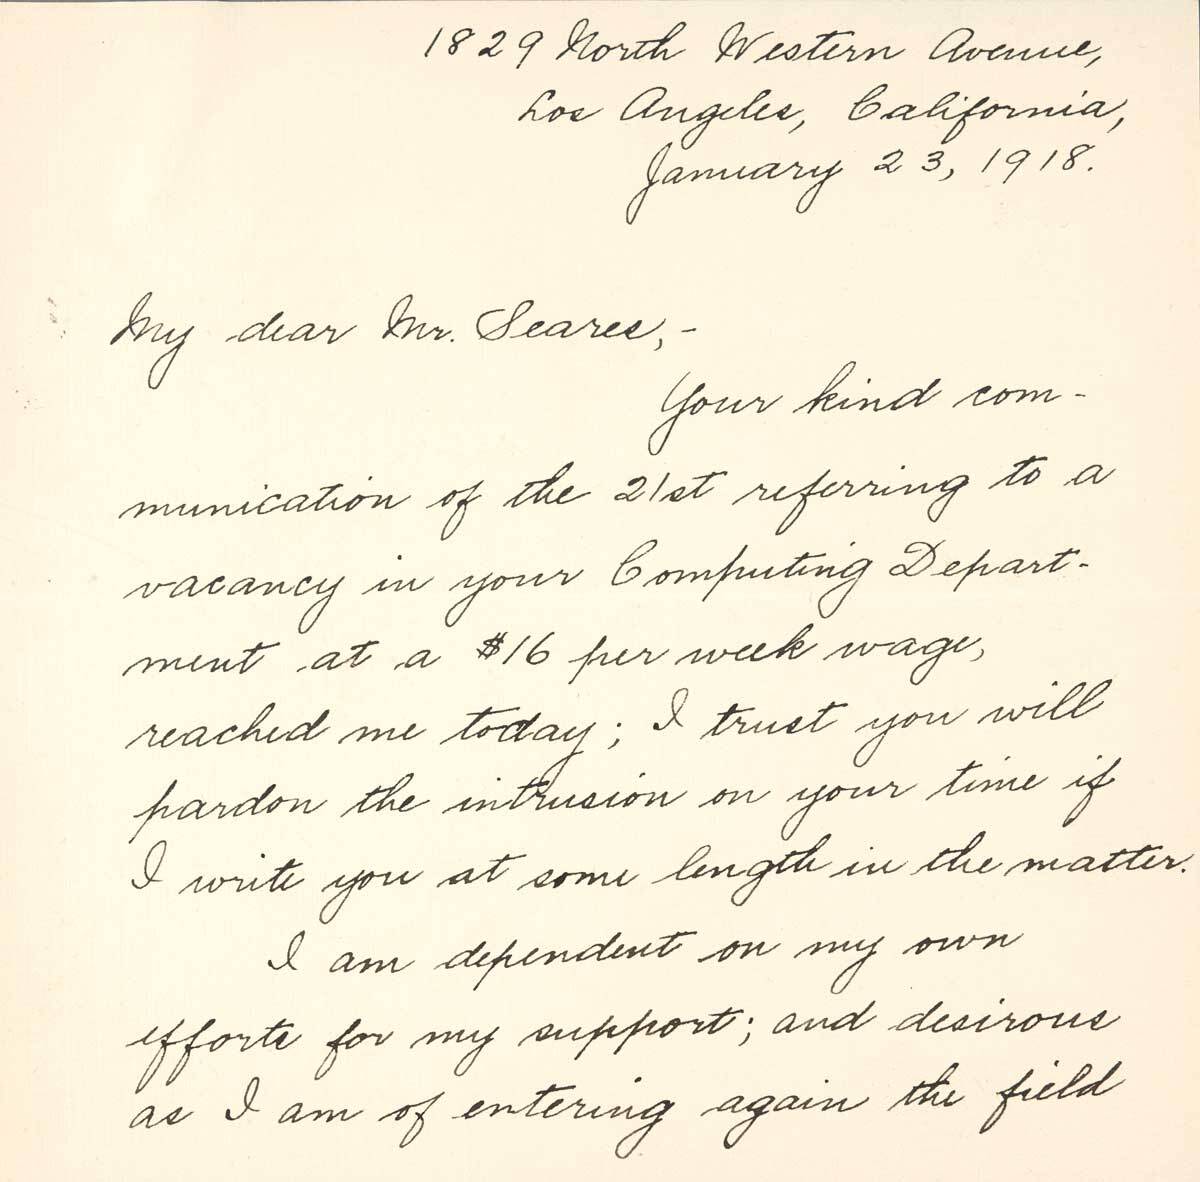 1829 North Western Avenue,
Los Angeles, California,
January 23, 1918.
My dear Mr. Seares,-
Your kind com-
munication of the 21st referring to a
vacancy in your Computing Depart-
ment at a $16 per week wage,
reached me today; I trust you will
pardon the intrusion on your time if
I write you at some length in the matter.
I am dependent on my own
efforts for my support; and desirous
as I am of entering again the field